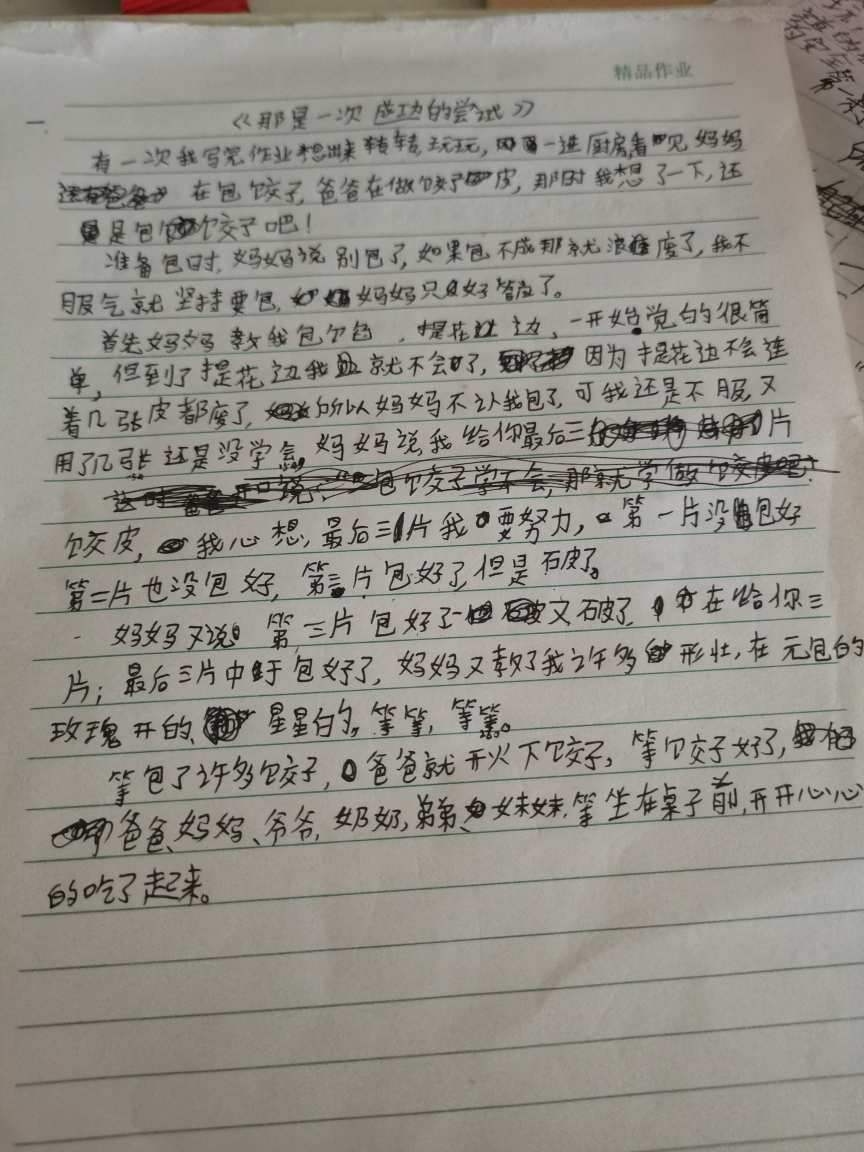 精品作业
《那是一次成功的尝试》
有一次我写完作业想出来转转,玩玩,一进厨房,看见妈妈
在包饺子,爸爸在做饺子皮,那时我想了一下,还
是包饺子吧!
准备包时,妈妈说别包了,如果包不成那就浪废了,我不
服气就坚持要包,妈妈只好答应了。
首先妈妈教我包,捏花边,一开始觉的很简
单,但到了捏花边我就不会了,因为捏花边不会连
着几张皮都废了,所以妈妈不让我包了,可我还是不服,又
用了几张还是没学会,妈妈说我给你最后三片
饺皮,我心想,最后三片我要努力,第一片没包好
第二片也没包好,第三片包好了,但是破了。
妈妈又说第三片包好了又破了,在给你三
片;最后三片中于包好了,妈妈又教了我许多形壮,在元包的
玫瑰开的、星星白的,等等,等等。
等包了许多饺子,爸爸就开火下饺子,等饺子好了,
爸爸、妈妈、爷爷,奶奶,弟弟、妹妹,等坐在桌子前,开开心心
的吃了起来。